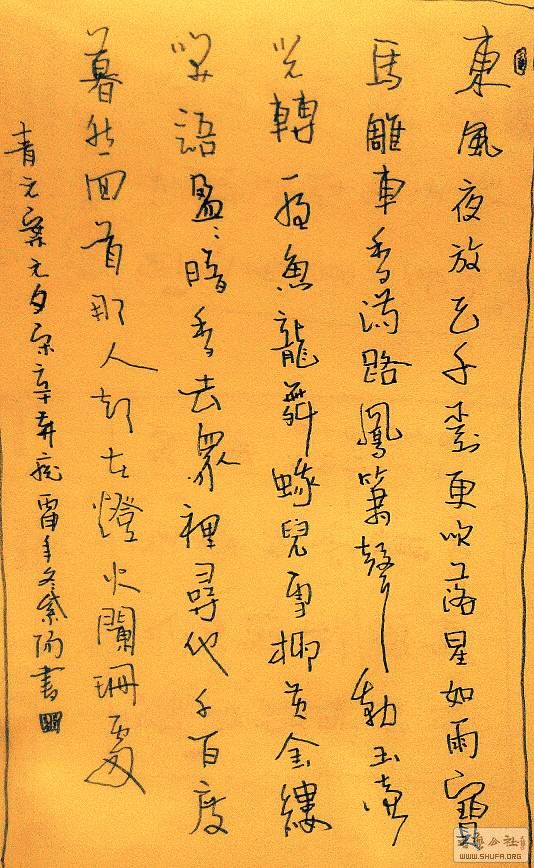 東風夜放花千樹更吹落星如雨寶
馬雕車香滿路鳳簫聲動玉壺
光轉一夜魚龍舞蛾兒雪柳黃金縷
笑語盈〻暗香去眾裡尋他千百度
暮然回首那人卻在燈火闌珊處
青玉案元夕宋辛弃疾年冬紫陽書
公社
WWW.SHUFA.ORG